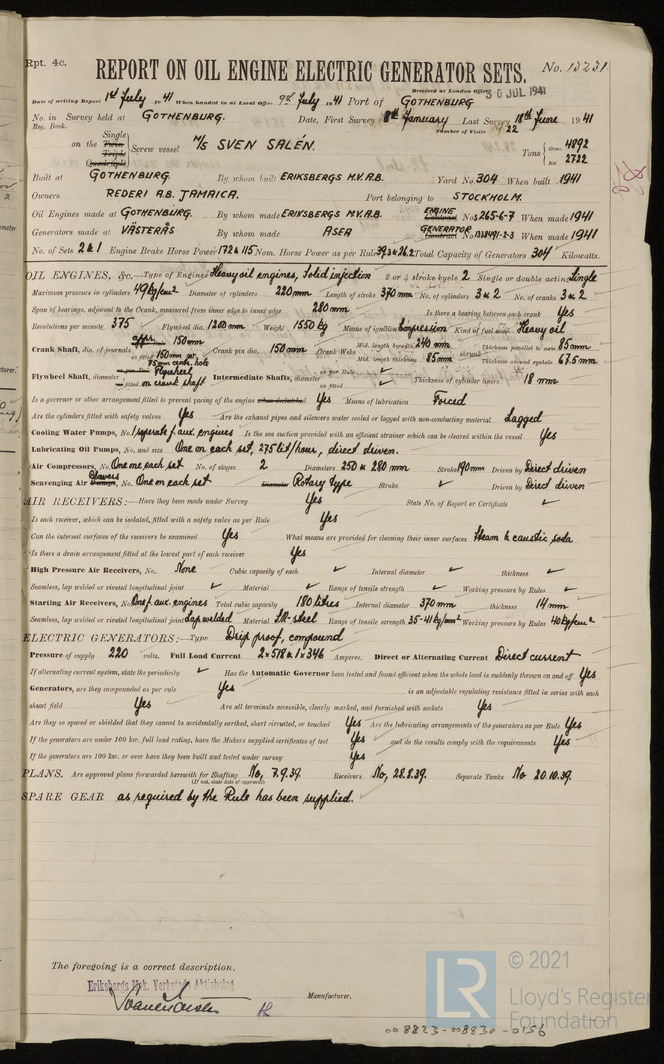 Rpt. 4c.
REPORT ON OIL ENGINE ELECTRIC GENERATOR SETS.
No. 13231.
Received at London Office 30 JUL 1941
Date of writing Report 1st July 1941 When handed in at Local Office 9th July 1941 Port of GOTHENBURG
No. in Survey held at GOTHENBURG. Date, First Survey 8th January Last Survey 18th June 1941
Reg. Book. Number of Visits 22
on the Single Twin Triple Quadruple Screw vessel M/S SVEN SALÉN. Tons Gross 4892 Net 2722
Built at GOTHENBURG By whom built ERIKSBERGS M.V.A.B. Yard No. 304 When built 1941
Owners REDERI A.B. JAMAICA. Port belonging to STOCKHOLM.
Oil Engines made at GOTHENBURG. By whom made ERIKSBERGS M.V.A.B. ENGINE Contract No. 265-6-7 When made 1941
Generators made at VÄSTERÅS By whom made ASEA GENERATOR Contract No. 1338491-2-3 When made 1941
No. of Sets 2 & 1 Engine Brake Horse Power 172 & 115 Nom. Horse Power as per Rule 39.3 & 26.2 Total Capacity of Generators 304 Kilowatts.
OIL ENGINES, &c.—Type of Engines Heavy oil engines, Solid injection 2 or 4 stroke cycle 2 Single or double acting Single
Maximum pressure in cylinders 49 kg/cm² Diameter of cylinders 220 mm Length of stroke 370 mm No. of cylinders 3 & 2 No. of cranks 3 & 2
Span of bearings, adjacent to the Crank, measured from inner edge to inner edge 280 mm Is there a bearing between each crank Yes
Revolutions per minute 375 Flywheel dia. 1200 mm Weight 1550 kg Means of ignition Compression Kind of fuel used Heavy oil
Crank Shaft, dia. of journals as per Rule appr. 150 mm as fitted 150 mm 75 mm centr. hole Crank pin dia. 150 mm Crank Webs Mid. length breadth 240 mm Mid. length thickness 85 mm shrunk Thickness parallel to axis 85 mm Thickness around eyehole 67.5 mm
Flywheel Shaft, diameter as per Rule as fitted Flywheel on crank shaft Intermediate Shafts, diameter as per Rule as fitted Thickness of cylinder liners 18 mm
Is a governor or other arrangement fitted to prevent racing of the engine when declutched Yes Means of lubrication Forced
Are the cylinders fitted with safety valves Yes Are the exhaust pipes and silencers water cooled or lagged with non-conducting material Lagged
Cooling Water Pumps, No. 1 seperate f. aux. engines Is the sea suction provided with an efficient strainer which can be cleared within the vessel Yes
Lubricating Oil Pumps, No. and size One on each set, 275 lit/hour, direct driven.
Air Compressors, No. One one each set No. of stages 2 Diameters 250 & 280 mm Stroke 190 mm Driven by Direct driven
Scavenging Air Pumps, Blowers No. One on each set Diameter Rotary type Stroke Driven by Direct driven
AIR RECEIVERS:—Have they been made under Survey Yes State No. of Report or Certificate
Is each receiver, which can be isolated, fitted with a safety valve as per Rule Yes
Can the internal surfaces of the receivers be examined Yes What means are provided for cleaning their inner surfaces Steam & caustic soda
Is there a drain arrangement fitted at the lowest part of each receiver Yes
High Pressure Air Receivers, No. None Cubic capacity of each Internal diameter thickness
Seamless, lap welded or riveted longitudinal joint Material Range of tensile strength Working pressure by Rules
Starting Air Receivers, No. One f. aux. engines Total cubic capacity 180 litres Internal diameter 370 mm thickness 14 mm
Seamless, lap welded or riveted longitudinal joint Lap welded Material S.M.-steel Range of tensile strength 35-41 kg/mm² Working pressure by Rules 40 kg/cm²
ELECTRIC GENERATORS:—Type Drip proof, compound
Pressure of supply 220 volts. Full Load Current 2 x 518 & 1 x 346 Amperes. Direct or Alternating Current Direct current
If alternating current system, state the periodicity Has the Automatic Governor been tested and found efficient when the whole load is suddenly thrown on and off Yes
Generators, are they compounded as per rule Yes is an adjustable regulating resistance fitted in series with each
shunt field Yes Are all terminals accessible, clearly marked, and furnished with sockets Yes
Are they so spaced or shielded that they cannot be accidentally earthed, short circuited, or touched Yes Are the lubricating arrangements of the generators as per Rule Yes
If the generators are under 100 kw. full load rating, have the Makers supplied certificates of test Yes and do the results comply with the requirements Yes
If the generators are 100 kw. or over have they been built and tested under survey Yes
PLANS. Are approved plans forwarded herewith for Shafting No, 7.9.39. Receivers No, 28.8.39. Separate Tanks No 20.10.39.
(If not, state date of approval)
SPARE GEAR as required by the Rule has been supplied.
The foregoing is a correct description,
Eriksbergs Mek. Verkstads Aktiebolag
Manufacturer.
© 2021
LR
Lloyd's Register
Foundation
008823-008830-0156